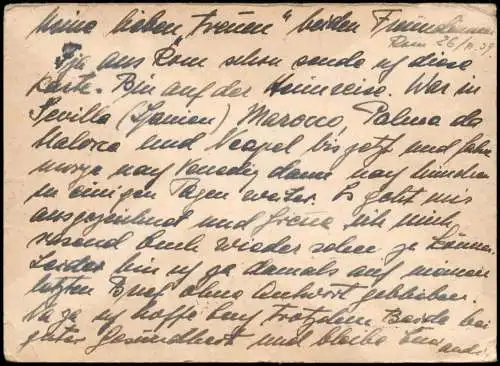 Meine lieben "treuen" beiden Freundinnen
Rom 26/11.39
Tja aus Rom schon sende ich diese
Karte. Bin auf der Heimreise. War in
Sevilla (Spanien) Marocco, Palma de
Malorca und Neapel bis jetzt und fahre
morgen nach Venedig dann nach München
in einigen Tagen weiter. Es geht mir
ausgezeichnet und freue ich mich
rasend Euch wieder sehen zu können.
Leider bin ich ja damals auf meinen
letzten Brief ohne Antwort geblieben.
Na ja ich hoffe Euch trotzdem Beide bei
guter Gesundheit und bleibe Euer